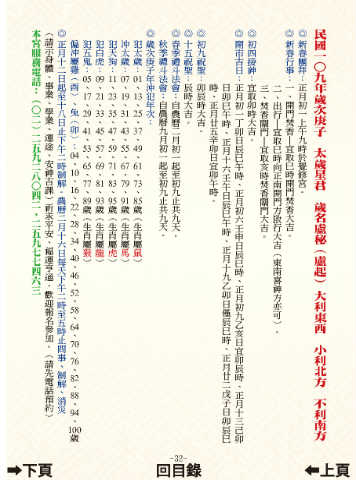 民國一〇九年歲次庚子　太歲星君　歲名盧秘（盧起）　大利東西　小利北方　不利南方
◎新春團拜：正月初一上午九時於覺修宮。
◎新春行事：一、開門焚香：宜取巳時開門焚香大吉。
二、出行：宜取巳時向正南開門方旅行大吉（東南喜神方亦可）。
三、焚香開門：宜取亥時焚香開門大吉。
◎初四接神：宜取卯時大吉。
◎開市吉日：正月初一丁卯日辰巳午時、正月初六壬申日辰巳時、正月初九乙亥日宜卯辰時、正月十三己卯
日卯巳午時、正月十六壬午日辰巳午時、正月十九乙卯日極辰巳時、正月廿二戊子日卯辰巳
時、正月廿五辛卯日宜卯午時。
◎初九祝聖：卯辰時大吉。
◎十五祝聖：辰時大吉。
◎春季禮斗法會：自農曆二月初一起至初九止共九天。
◎秋季禮斗法會：自農曆九月初一起至初九止共九天。
◎歲次庚子年沖犯年次：
犯太歲：01、13、25、37、49、61、73、85歲（生肖屬鼠）
沖太歲：07、19、31、43、55、67、79、91歲（生肖屬馬）
犯天狗：11、23、35、47、59、71、83、95歲（生肖屬虎）
犯白虎：09、21、33、45、57、69、81、93歲（生肖屬龍）
犯五鬼：05、17、29、41、53、65、77、89歲（生肖屬猴）
偏沖屬雞（酉）、兔（卯）：04、10、16、22、28、34、40、46、52、58、64、70、76、82、88、94、100歲
◎正月十二日起至十八日止下午二時制解，農曆二月十六日每天下午二時至五時止問事、制解、消災
（請示身體、事業、學業、運途、安神占課）祈求平安、福運亨通，歡迎報名參加。（請先電話預約）
本宮服務電話：（〇二）二五九二八〇四二、二五九七七四六三
-32-
➡下頁
回目錄
⬅上頁